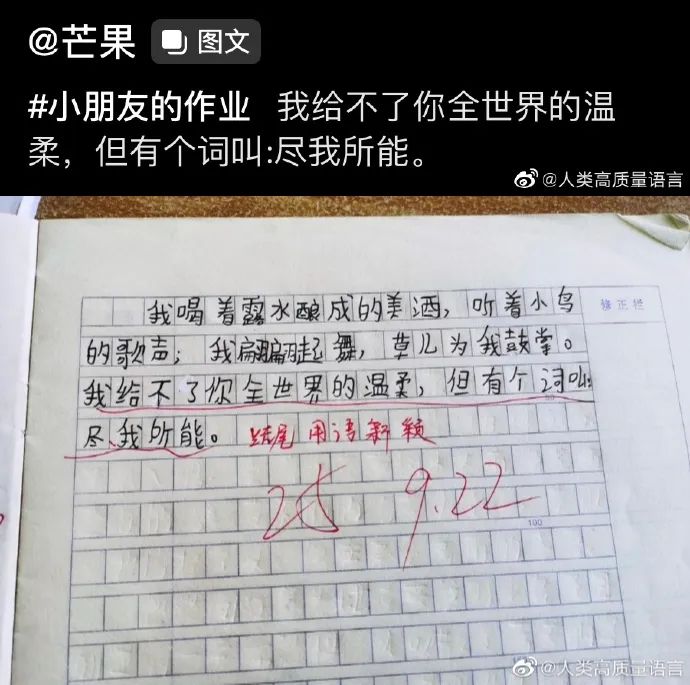 @芒果 图文
#小朋友的作业 我给不了你全世界的温
柔，但有个词叫:尽我所能。
@人类高质量语言
我喝着露水酿成的美酒，听着小鸟
修正栏
的歌声；我翩翩起舞，草儿为我鼓掌。
我给不了你全世界的温柔，但有个词叫：
尽我所能。 结尾用语新颖
25 9.22
100
@人类高质量语言